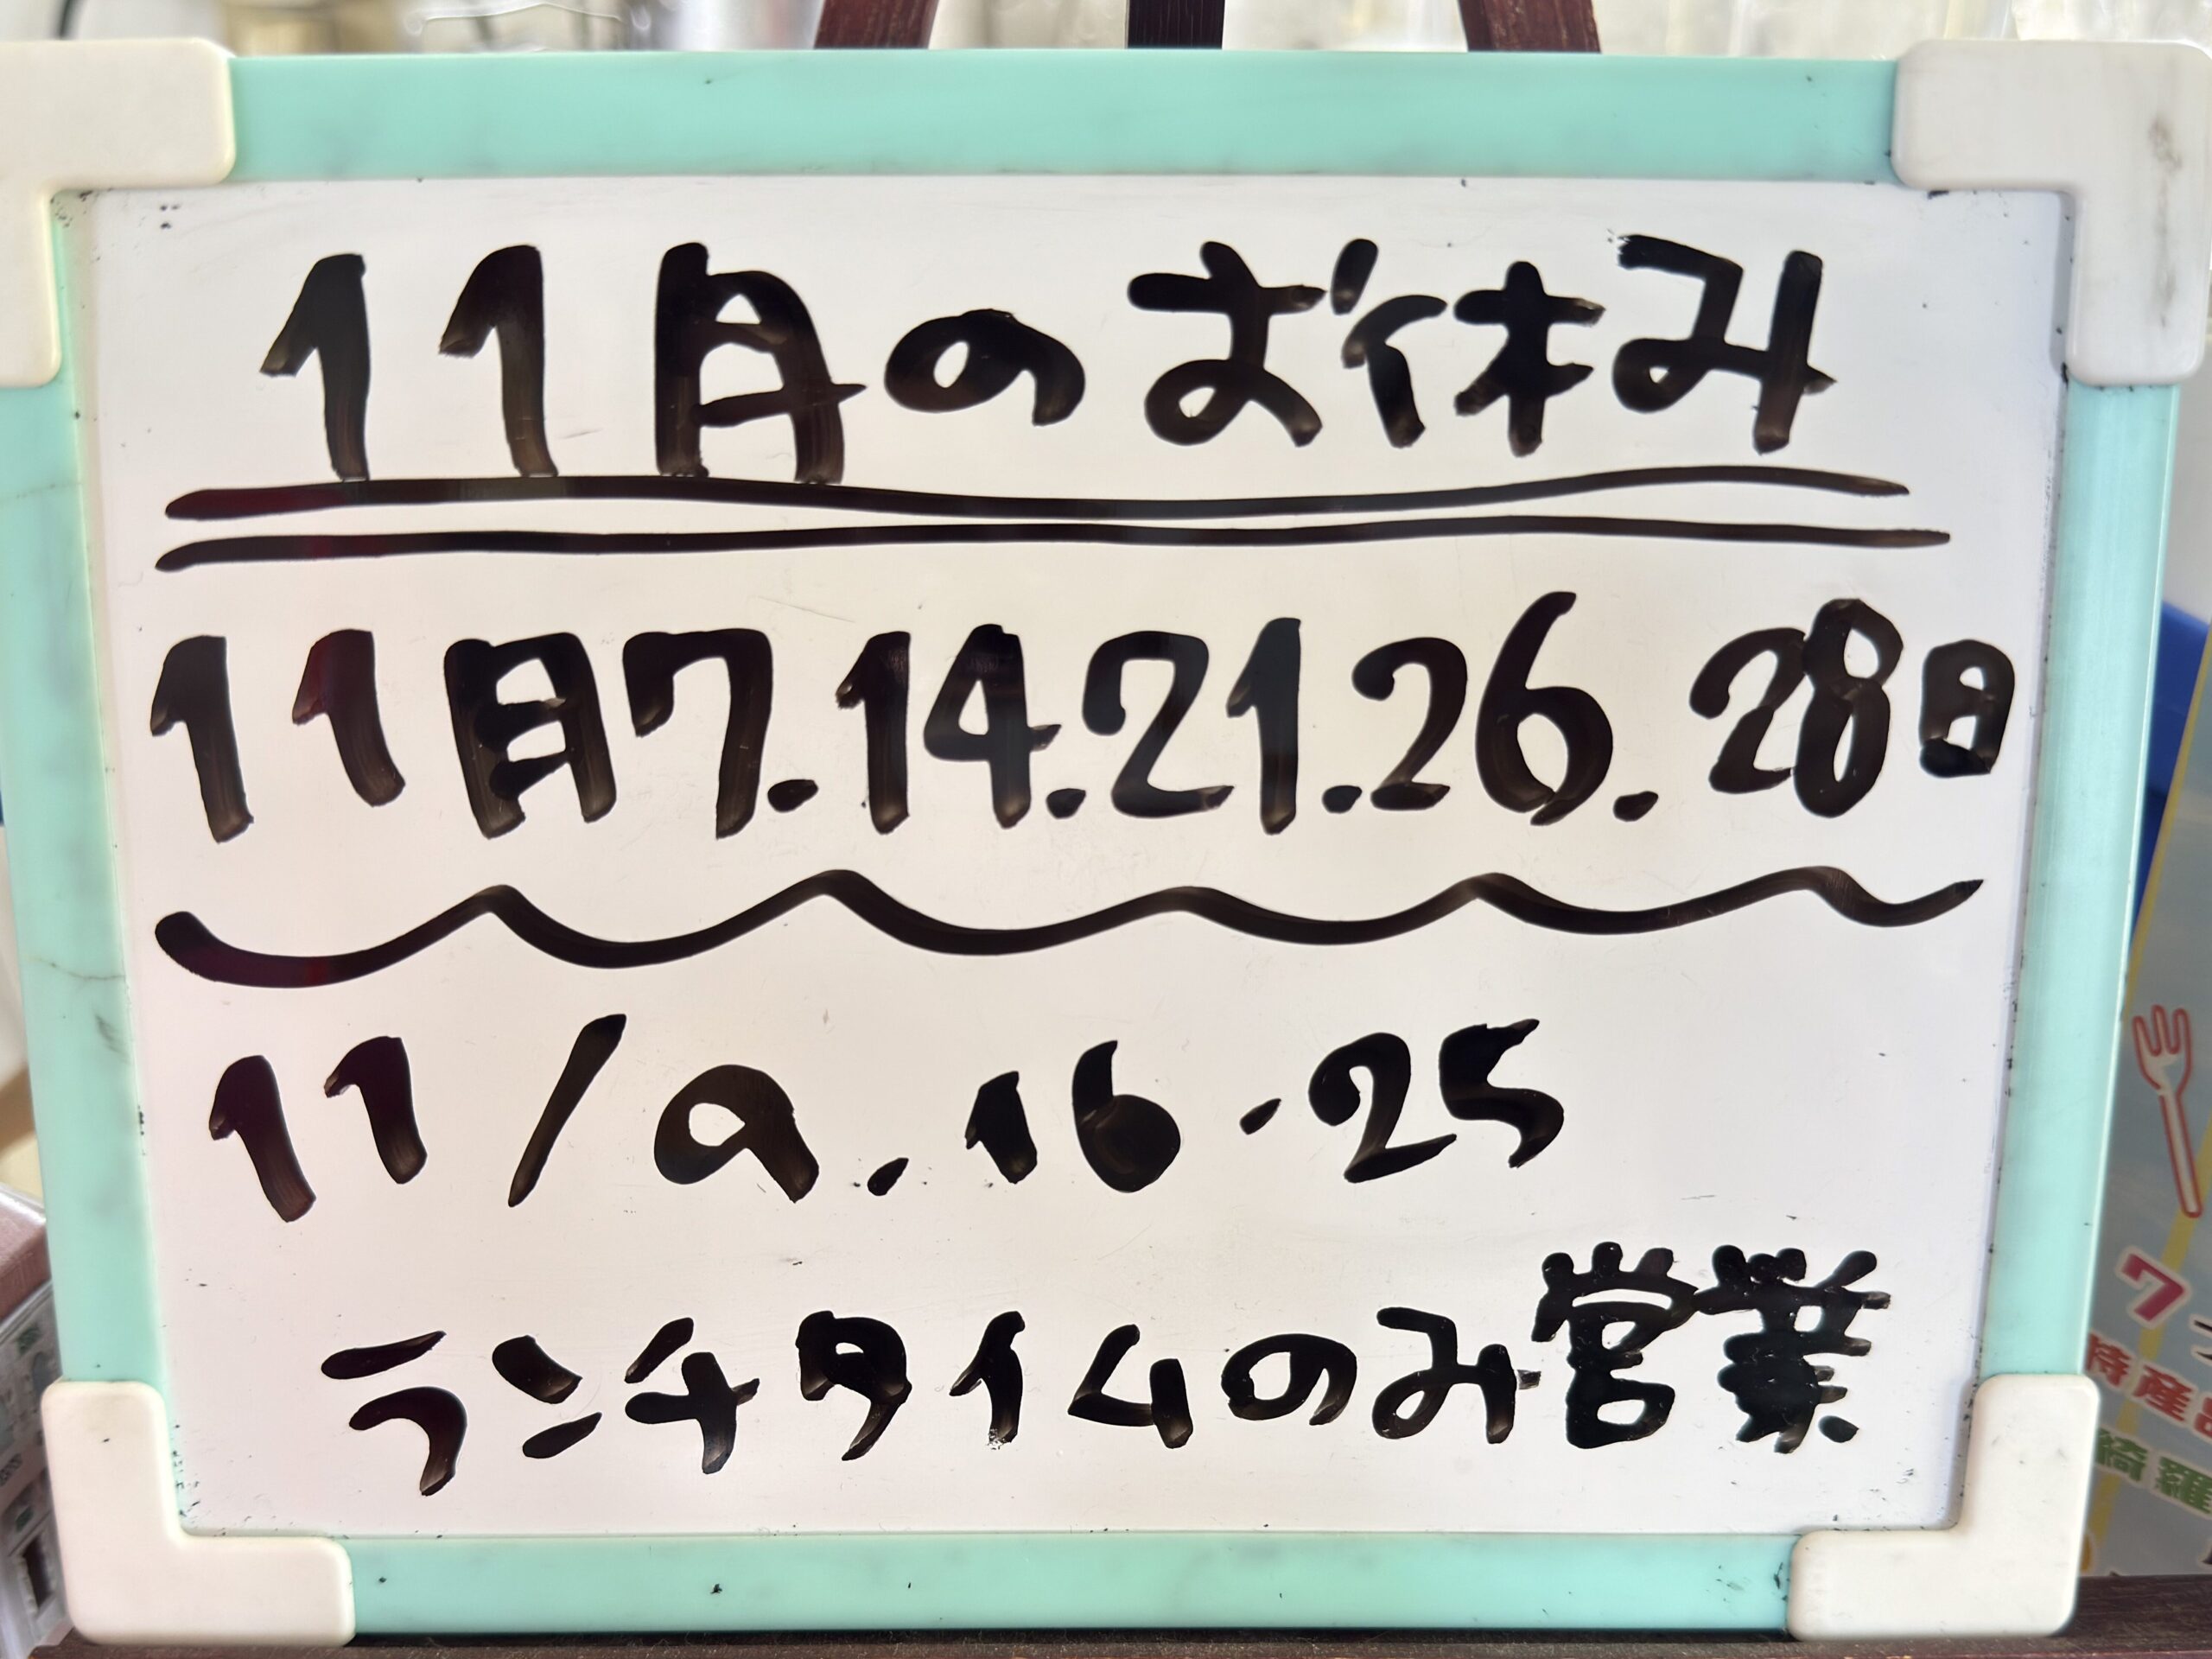 11月のお休み
11月7.14.21.26.28日
11/9.16.25
ランチタイムのみ営業